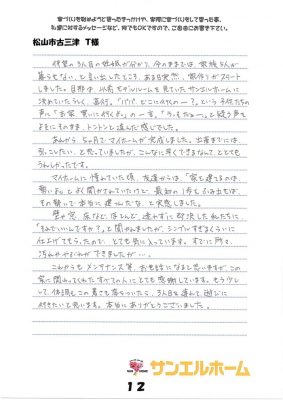 家づくりを始めようと思ったきっかけや、実際に家づくりをして思った事、
私達に対するメッセージなど、何でもOKですので、ご自由にお書き下さい。
松山市古三津 T様
待望の3人目の妊娠が分かり、今のままでは、家族5人が
暮らせない、と言い出したところ、ある日突然、家作りがスタート
しました。旦那は、以前からサンエルホームに
決めていたらしく、
声に「お家、買いに行くよ。」の一言。
よそにそのまま、トントンと進んだ感じでした。
あれから、5ヶ月でマイホームが完成しました。出産までには、
引っこしたい、と思っていましたが、こんなに早くできるなんて、とても
うれしかったです。
マイホームに憧れていた頃、友達からは、「家を建てるのは、
勢いよ」とよく聞かされていたけど、最初の1歩をふみ出せば、
その勢いで本当に建つんだな、と実感しました。
壁や窓、床など、ほとんど迷わずに即決した私たちに、
「それでいいんですか?」と聞かれましたが、シンプルすぎるくらいに
仕上げてもらったので、とても気に入っています。すでに所々、
汚れやキズがありましたが…。
これからもメンテナンス等、お世話になると思いますが、この
家に関わってくれたすべての人にとても感謝しています。もう少し
して、体調もこの暑さも落ちついたら、3人目を連れて遊びに
行きたいと思います。本当にありがとうございました。
サンエルホーム
12